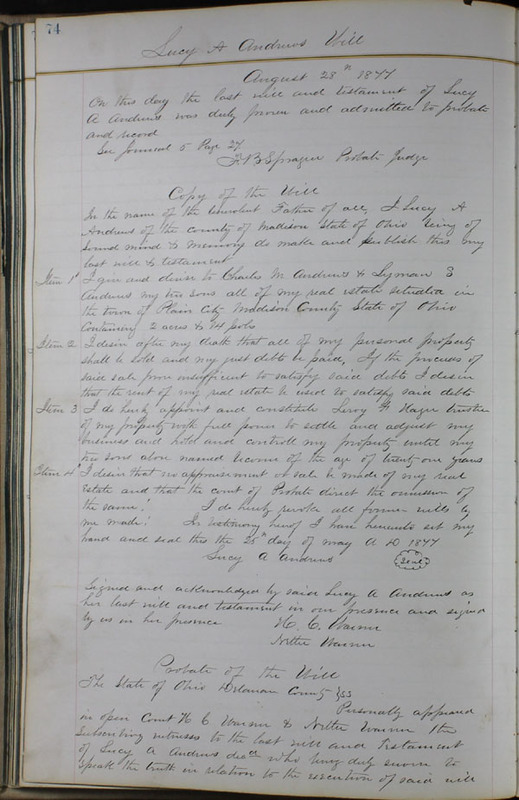 74
Lucy A Andrews Will
August 28th 1877
On this day the last will and testament of Lucy
A Andrews was duly proven and admitted to probate
and record
See Journal 5 Page 27
F. B. Sprague Probate Judge
Copy of the Will
In the name of the benevolent Father of all, I Lucy A
Andrews of the county of Madison State of Ohio being of
sound mind & memory do make and publish this my
last will & testament
Item 1st I give and devise to Charles M Andrews & Lyman S
Andrews my two sons all of my real estate situated in
the town of Plain City Madison County State of Ohio
Containing 2 acres & 74 pols
Item 2 I desire after my death that all of my personal property
shall be sold and my just debts be paid, If the proceeds of
said sale prove insufficient to satisfy said debts I desire
that the rent of my real estate be used to satisfy said debts
Item 3 I do hereby appoint and constitute Leroy H Hager trustee
of my property with full power to settle and adjust my
business and hold and controll my property until my
two sons above named become of the age of twenty one years
Item 4 I desire that no appraisement or sale be made of my real
Estate and that the court of Probate direct the omission of
the same. I do hereby revoke all former wills by
me made: In testimony hereof I have hereunto set my
hand and seal this the 25th day of may A D 1877
Lucy A Andrews Seal
Signed and acknowledged by said Lucy A Andrews as
her last will and testament in our presence and signed
by us in her presence H. C. Warner
Nettie Warner
Probate of the Will
The State of Ohio Delaware County }SS
Personally appeared
in open Court H C Warner & Nettie Warner the
subscribing witnesses to the last will and testament
of Lucy A Andrews decd who being duly sworn to
speak the truth in relation to the execution of said will